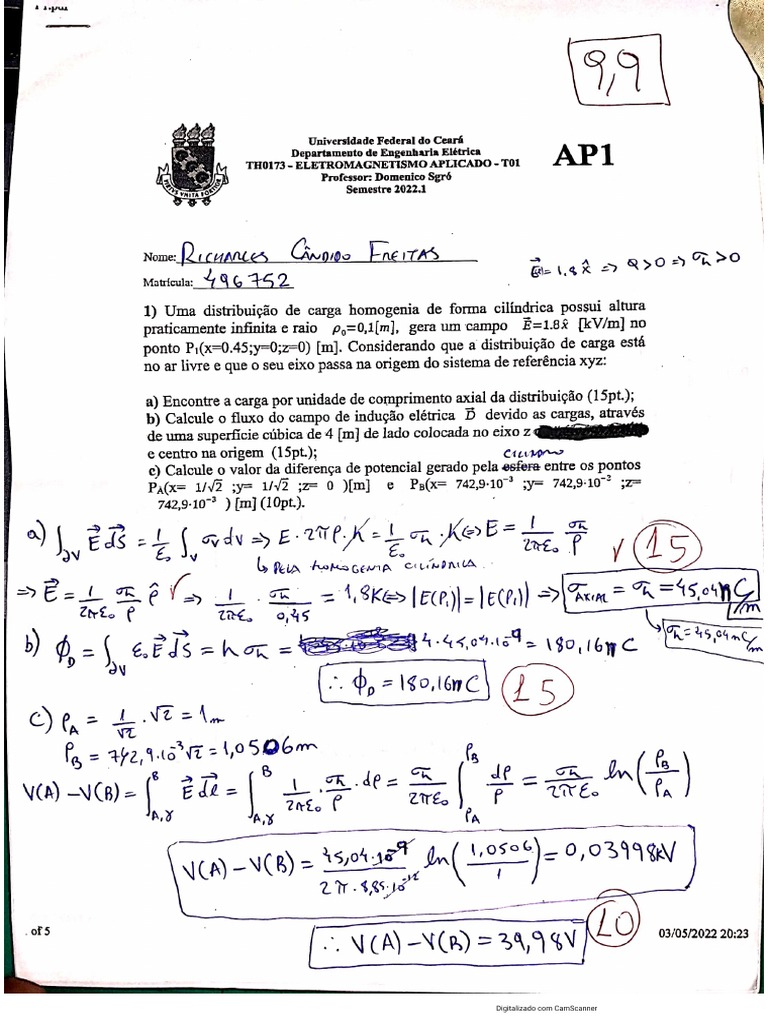 9,9
Universidade Federal do Ceará
Departamento de Engenharia Elétrica
TH0173 - ELETROMAGNETISMO APLICADO - T01
Professor: Domenico Sgró
Semestre 2022.1
AP1
VIRTUS UNITA FORTIOR
Nome: RICHARLES CÂNDIDO FREITAS
Matrícula: 496752
E⃗ = 1.8 x̂ => Q > 0 => σh > 0
1) Uma distribuição de carga homogenia de forma cilíndrica possui altura
praticamente infinita e raio ρ₀=0,1[m], gera um campo E⃗=1.8x̂ [kV/m] no
ponto P₁(x=0.45;y=0;z=0) [m]. Considerando que a distribuição de carga está
no ar livre e que o seu eixo passa na origem do sistema de referência xyz:
a) Encontre a carga por unidade de comprimento axial da distribuição (15pt.);
b) Calcule o fluxo do campo de indução elétrica D⃗ devido as cargas, através
de uma superfície cúbica de 4 [m] de lado colocada no eixo z
e centro na origem (15pt.);
cilindro
c) Calcule o valor da diferença de potencial gerado pela esfera entre os pontos
P_A(x= 1/√2 ;y= 1/√2 ;z= 0 )[m] e P_B(x= 742,9·10⁻³ ;y= 742,9·10⁻² ;z=
742,9·10⁻³ ) [m] (10pt.).
a) ∫∂V E⃗ dS⃗ = 1/ε₀ ∫V σv dv => E · 2πρ · h = 1/ε₀ σh · h <=> E = 1/2πε₀ σh/ρ
↳ PELA HOMOGENIA CILÍNDRICA
√ 15
=> E⃗ = 1/2πε₀ σh/ρ ρ̂ => 1/2πε₀ · σh/0,45 = 1,8K <=> |E(P₁)| = |E(P₁)| => σAXIAL = σh = 45,04 nC/m
↳ σh = 45,04 nC/m
b) ϕD = ∫∂V ε₀ E⃗ dS⃗ = h σh = 4·45,04·10⁻⁹ = 180,16 nC
∴ ϕD = 180,16 nC
15
c) ρA = 1/√2 · √2 = 1m
ρB = 742,9·10⁻³√2 = 1,0506m
V(A) – V(B) = ∫A,γ^B E⃗ dl⃗ = ∫A,γ^B 1/2πε₀ · σh/ρ · dρ = σh/2πε₀ ∫ρA^ρB dρ/ρ = σh/2πε₀ ln(ρB/ρA)
V(A) – V(B) = 45,04·10⁻⁹/2π·8,85·10⁻¹² ln(1,0506/1) = 0,03998kV
∴ V(A) – V(B) = 39,98V
10
of 5
03/05/2022 20:23
Digitalizado com CamScanner